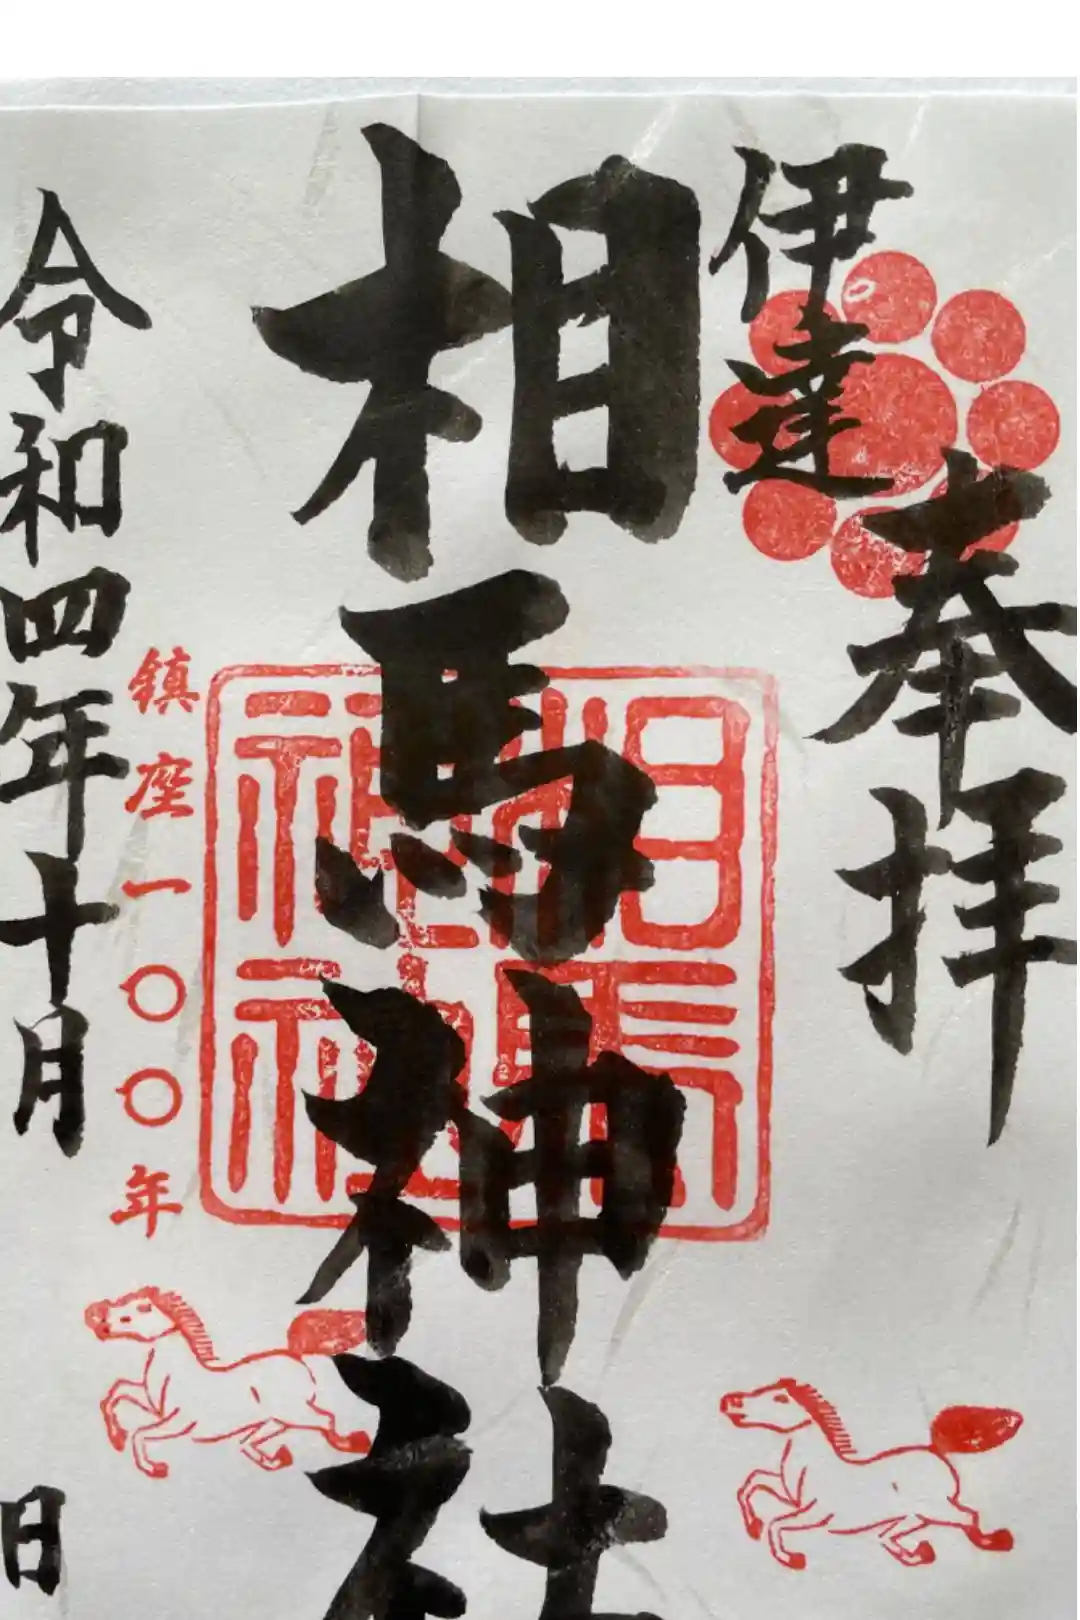 奉拝
伊達
相馬神社
相馬神社
鎮座一〇〇年
令和四年十月 日